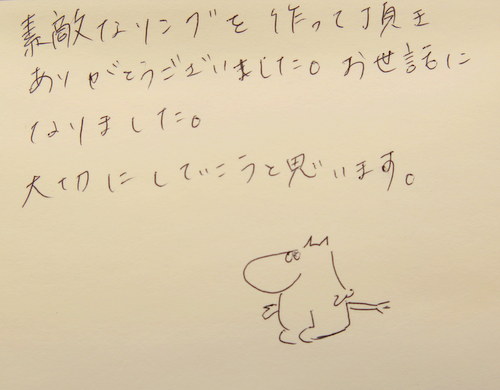 素敵なリングを作って頂き
ありがとうございました。お世話に
なりました。
大切にしていこうと思います。